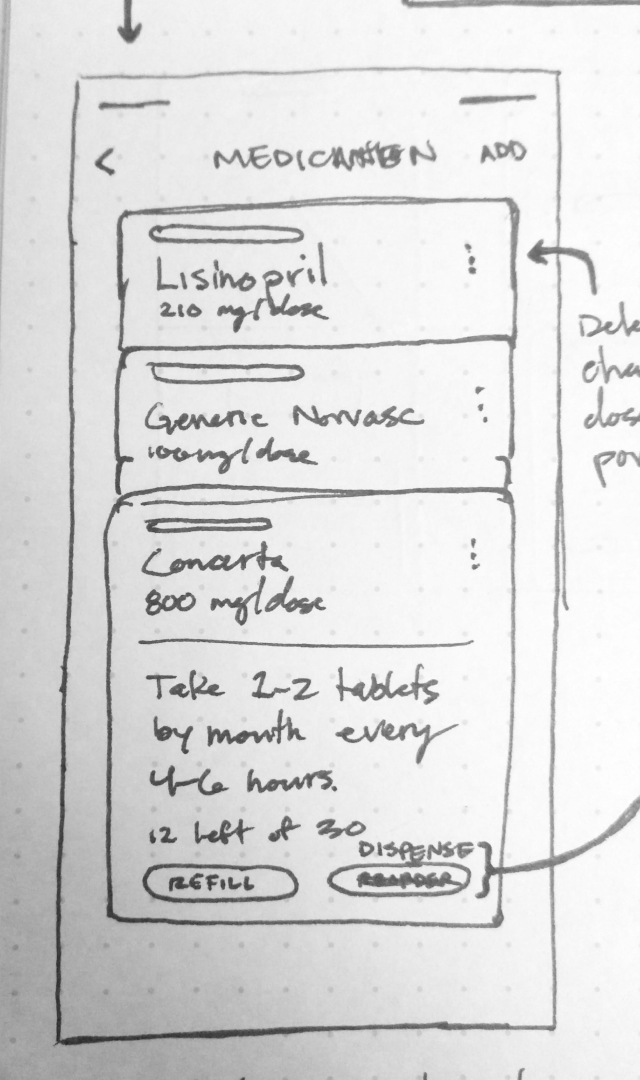 < ADD
Lisinopril
210 mg/dose
Generic Norvasc
100mg/dose
Concerta
800 mg/dose
Take 1-2 tablets
by mouth every
4-6 hours.
12 left of 30
DISPENSE
REFILL REORDER
dos